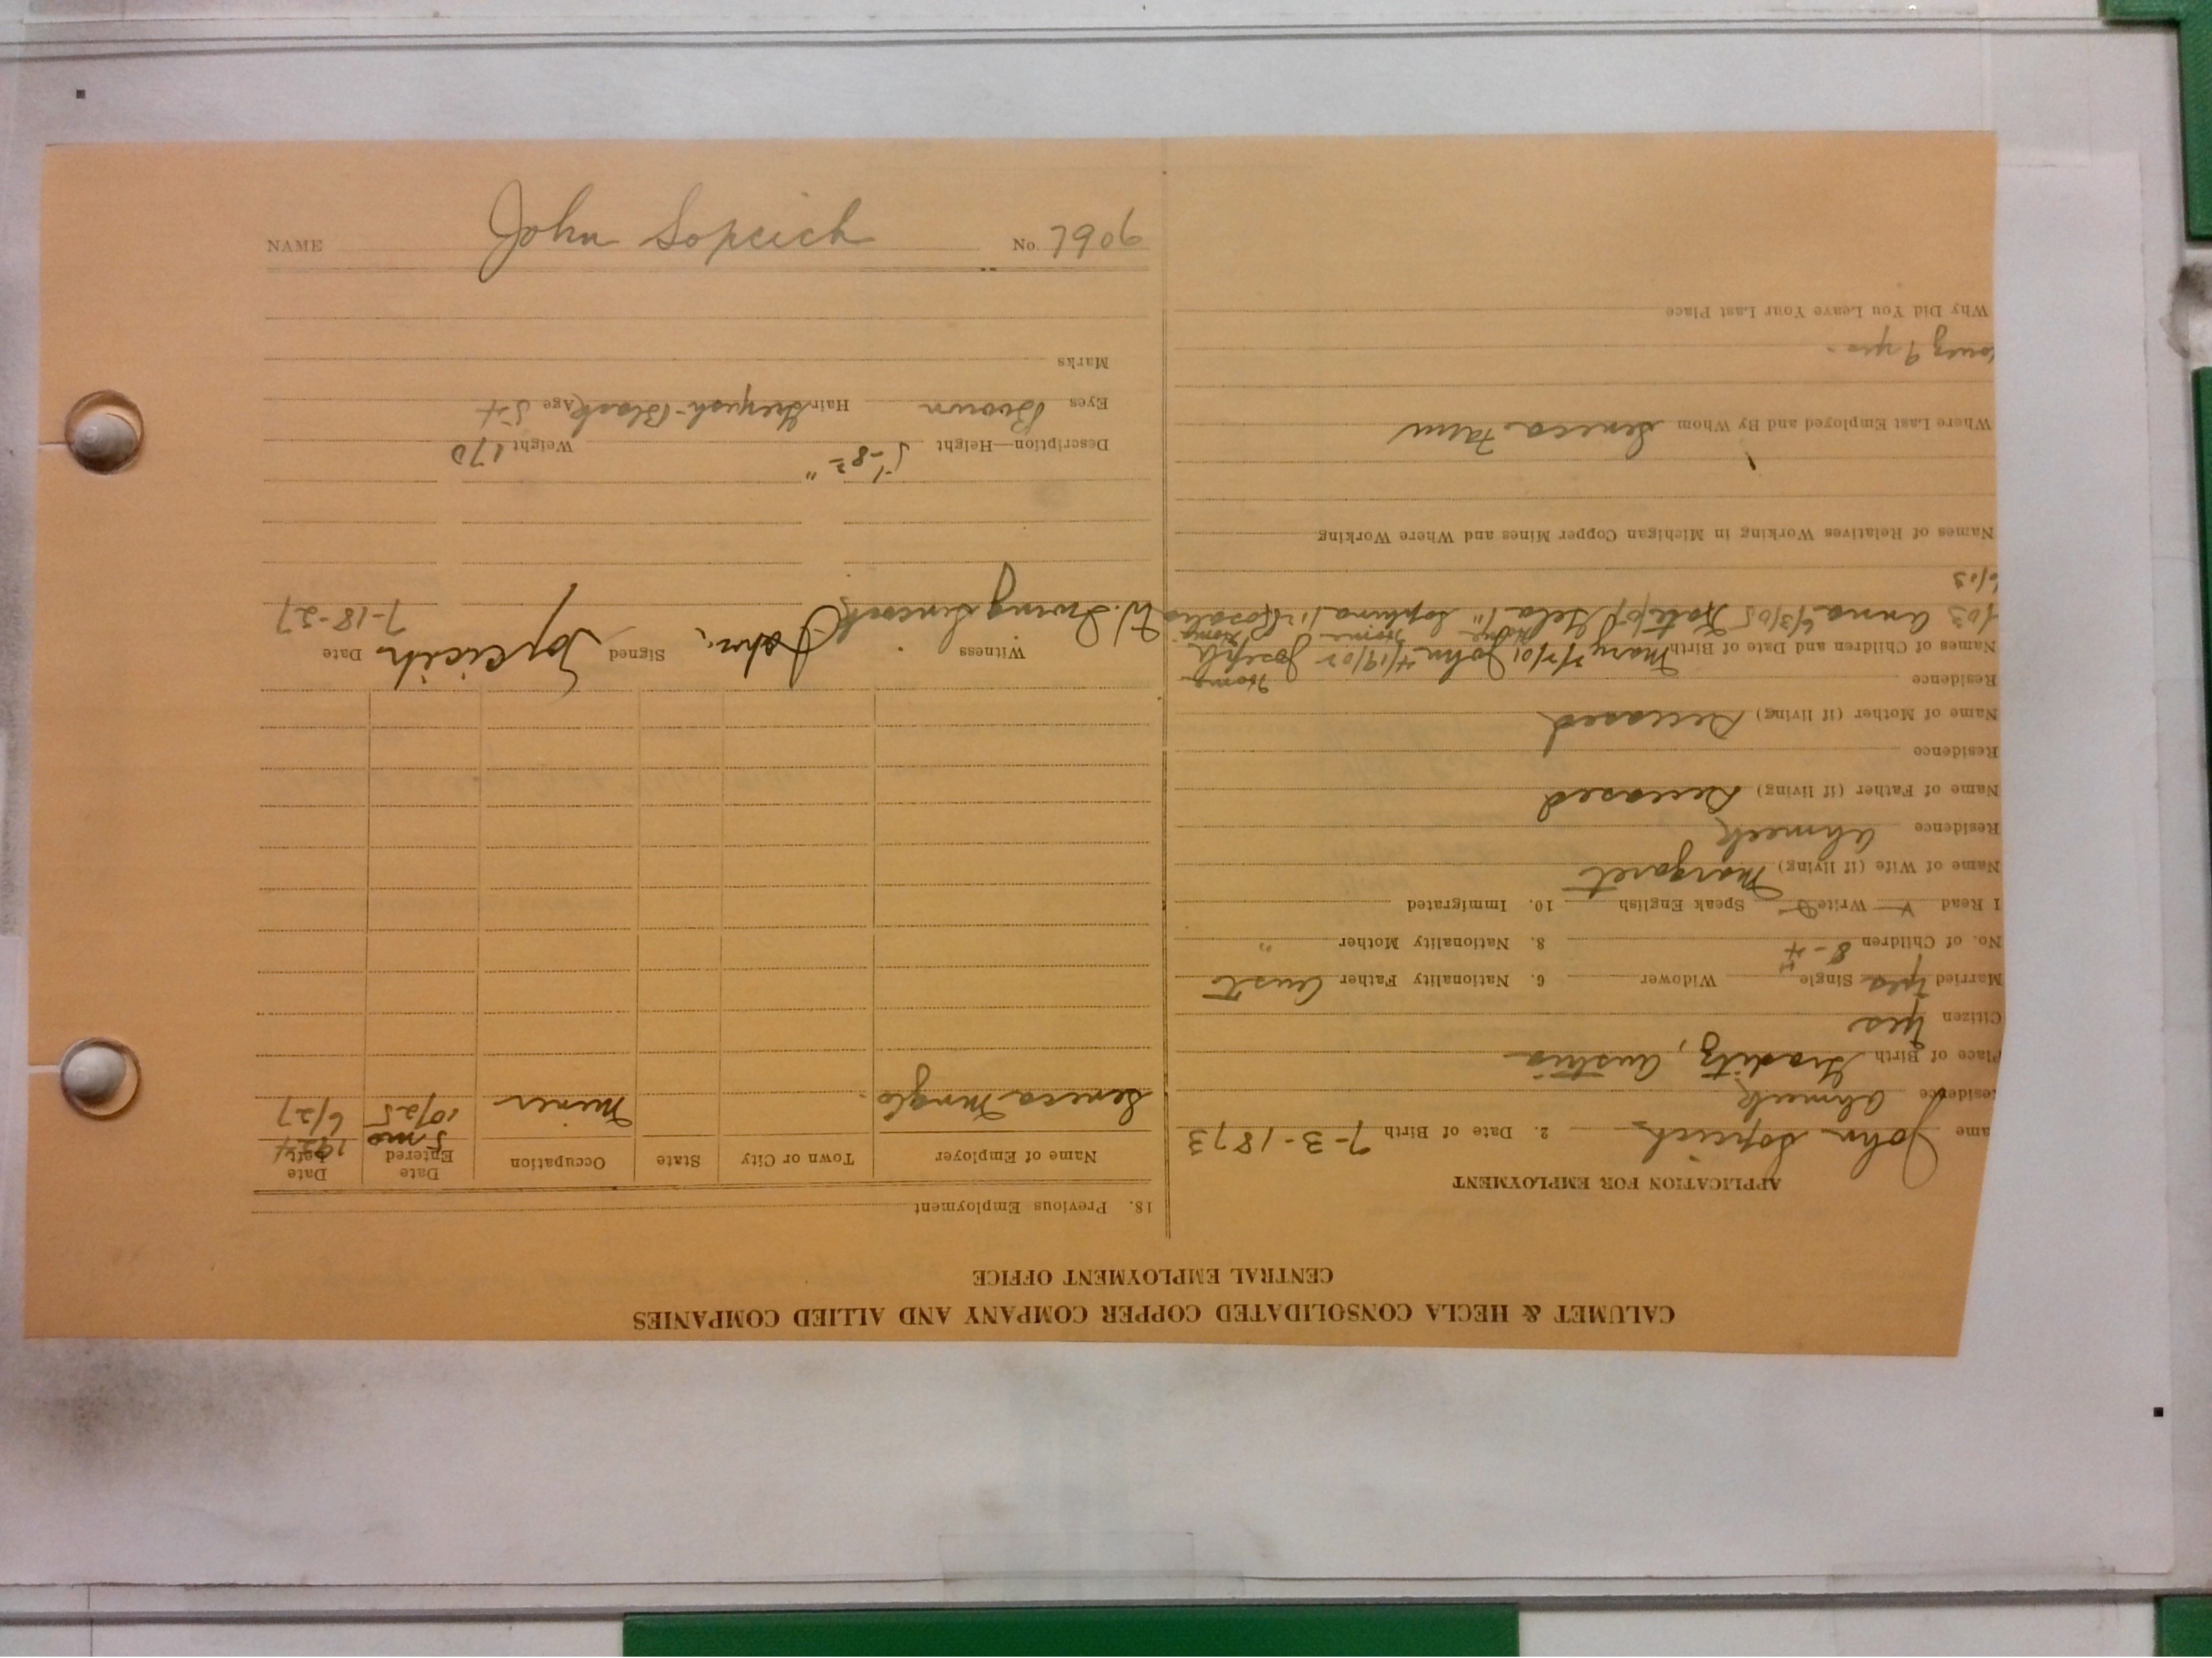 NAME John Sopcich No. 7906
CALUMET & HECLA CONSOLIDATED COPPER COMPANY AND ALLIED COMPANIES
CENTRAL EMPLOYMENT OFFICE
APPLICATION FOR EMPLOYMENT
ame John Sopcich 2. Date of Birth 7-3-1873
Residence Ahmeek
Place of Birth Graditz, Austria
Citizen Yes
Married Yes Single Widower 6. Nationality Father Aust
No. of Children 8-4 8. Nationality Mother "
I Read Write Speak English 10. Immigrated
Name of Wife (if living) Margaret
Residence Ahmeek
Name of Father (if living) Deceased
Residence
Name of Mother (if living) Deceased
Residence
Names of Children and Date of Birth Mary 7/7/01 John 4/19/02 Joseph Home
/03 Anna 6/3/05 Kate Home Home Home Rosalia
6/03
Names of Relatives Working in Michigan Copper Mines and Where Working
Where Last Employed and By Whom Seneca Farm
9 yrs.
Why Did You Leave Your Last Place
18. Previous Employment
Name of Employer Town or City State Occupation Date Entered Date Left
5 mo 1924
Seneca Mng Co. Miner 10/25 6/27
Witness W. Irving Signed John Sopcich Date 7-18-27
Description—Height 5'-8½" Weight 170
Eyes Brown Hair Greyish-Black Age 54
Marks